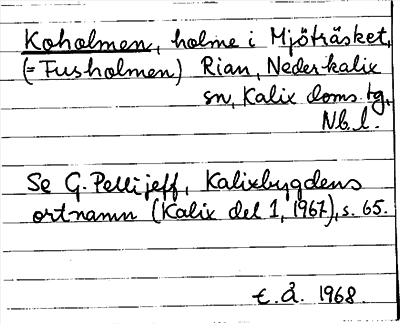 Koholmen, holme i Mjöträsket,
(= Fusholmen) Rian, Nederkalix
sn, Kalix doms.tg,
Nb. l.
Se G. Pellijeff, Kalixbygdens
ortnamn (Kalix del 1, 1967), s. 65.
E. Å. 1968.